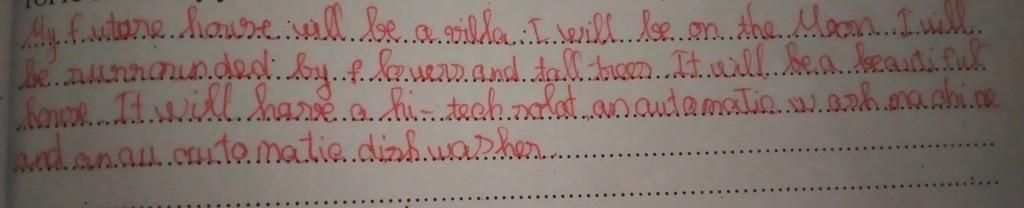 My future house will be a villa. I will be on the Moon. I will
be surrounded by flowers and tall trees. It will be a beautiful
house. It will have a hi-tech robot, an automatic wash machine
and an au automatic dishwasher.